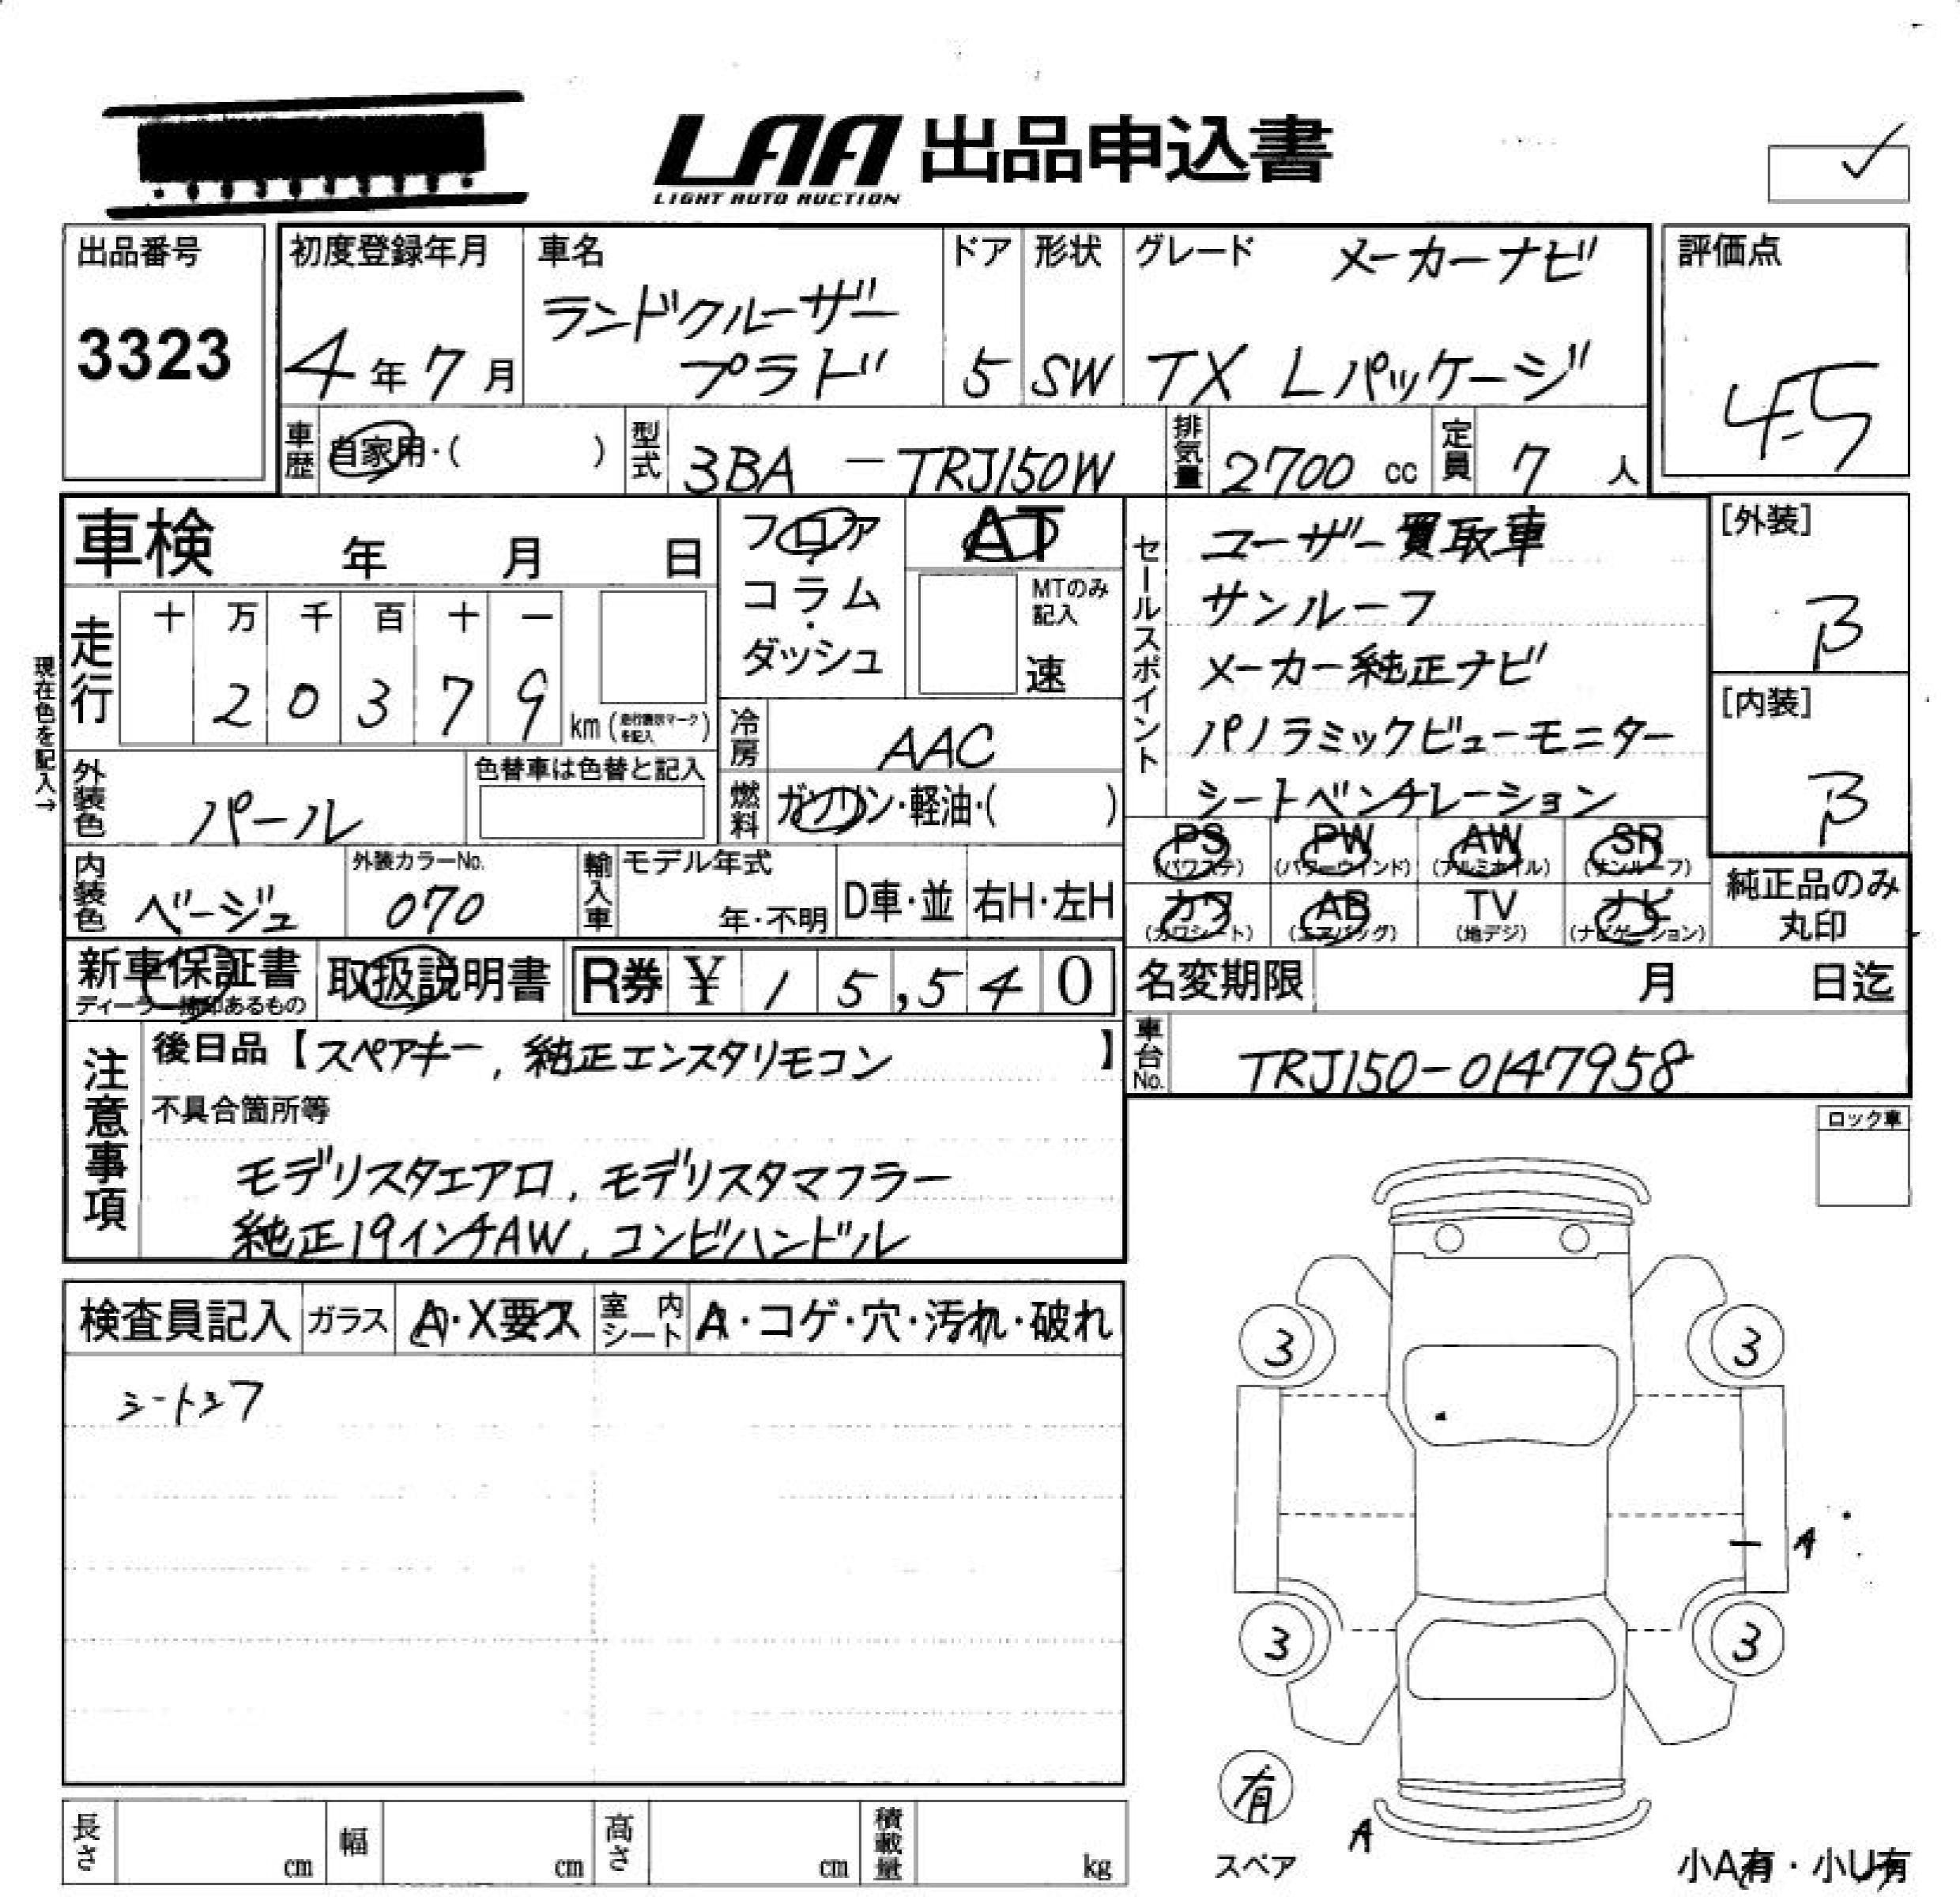 LAA 出品申込書
LIGHT AUTO AUCTION
出品番号
3323
初度登録年月
4年7月
車名
ランドクルーザー
プラド
ドア
5
形状
SW
グレード
メーカーナビ
TX Lパッケージ
評価点
4.5
車歴
自家用・( )
型式
3BA - TRJ150W
排気量
2700 cc
定員
7 人
車検 年 月 日
フロア・
コラム・
ダッシュ
AT
MTのみ
記入
速
現在色を記入→
走行
十 万 千 百 十 一
2 0 3 7 9
km (走行表示マーク
を記入)
冷房
AAC
燃料
ガソリン・軽油・( )
外装色
パール
色替車は色替と記入
内装色
ベージュ
外装カラーNo.
070
輸入車
モデル年式
年・不明
D車・並
右H・左H
セールスポイント
ユーザー買取車
サンルーフ
メーカー純正ナビ
パノラミックビューモニター
シートベンチレーション
[外装]
B
[内装]
B
PS
(パワステ)
PW
(パワーウインド)
AW
(アルミホイル)
SR
(サンルーフ)
カワ
(カワシート)
AB
(エアバッグ)
TV
(地デジ)
ナビ
(ナビゲーション)
純正品のみ
丸印
新車保証書
ディーラー捺印あるもの
取扱説明書
R券 ¥ 1 5,5 4 0
名変期限 月 日迄
車台No.
TRJ150-0147958
注意事項
後日品【スペアキー, 純正エンスタリモコン 】
不具合箇所等
モデリスタエアロ, モデリスタマフラー
純正19インチAW, コンビハンドル
ロック車
検査員記入
ガラス
A・X要ス
室内
シート
A・コゲ・穴・汚れ・破れ
シートシワ
3
3
A
3
3
有
スペア
A
小A有・小U有
長さ cm
幅 cm
高さ cm
積載量 kg